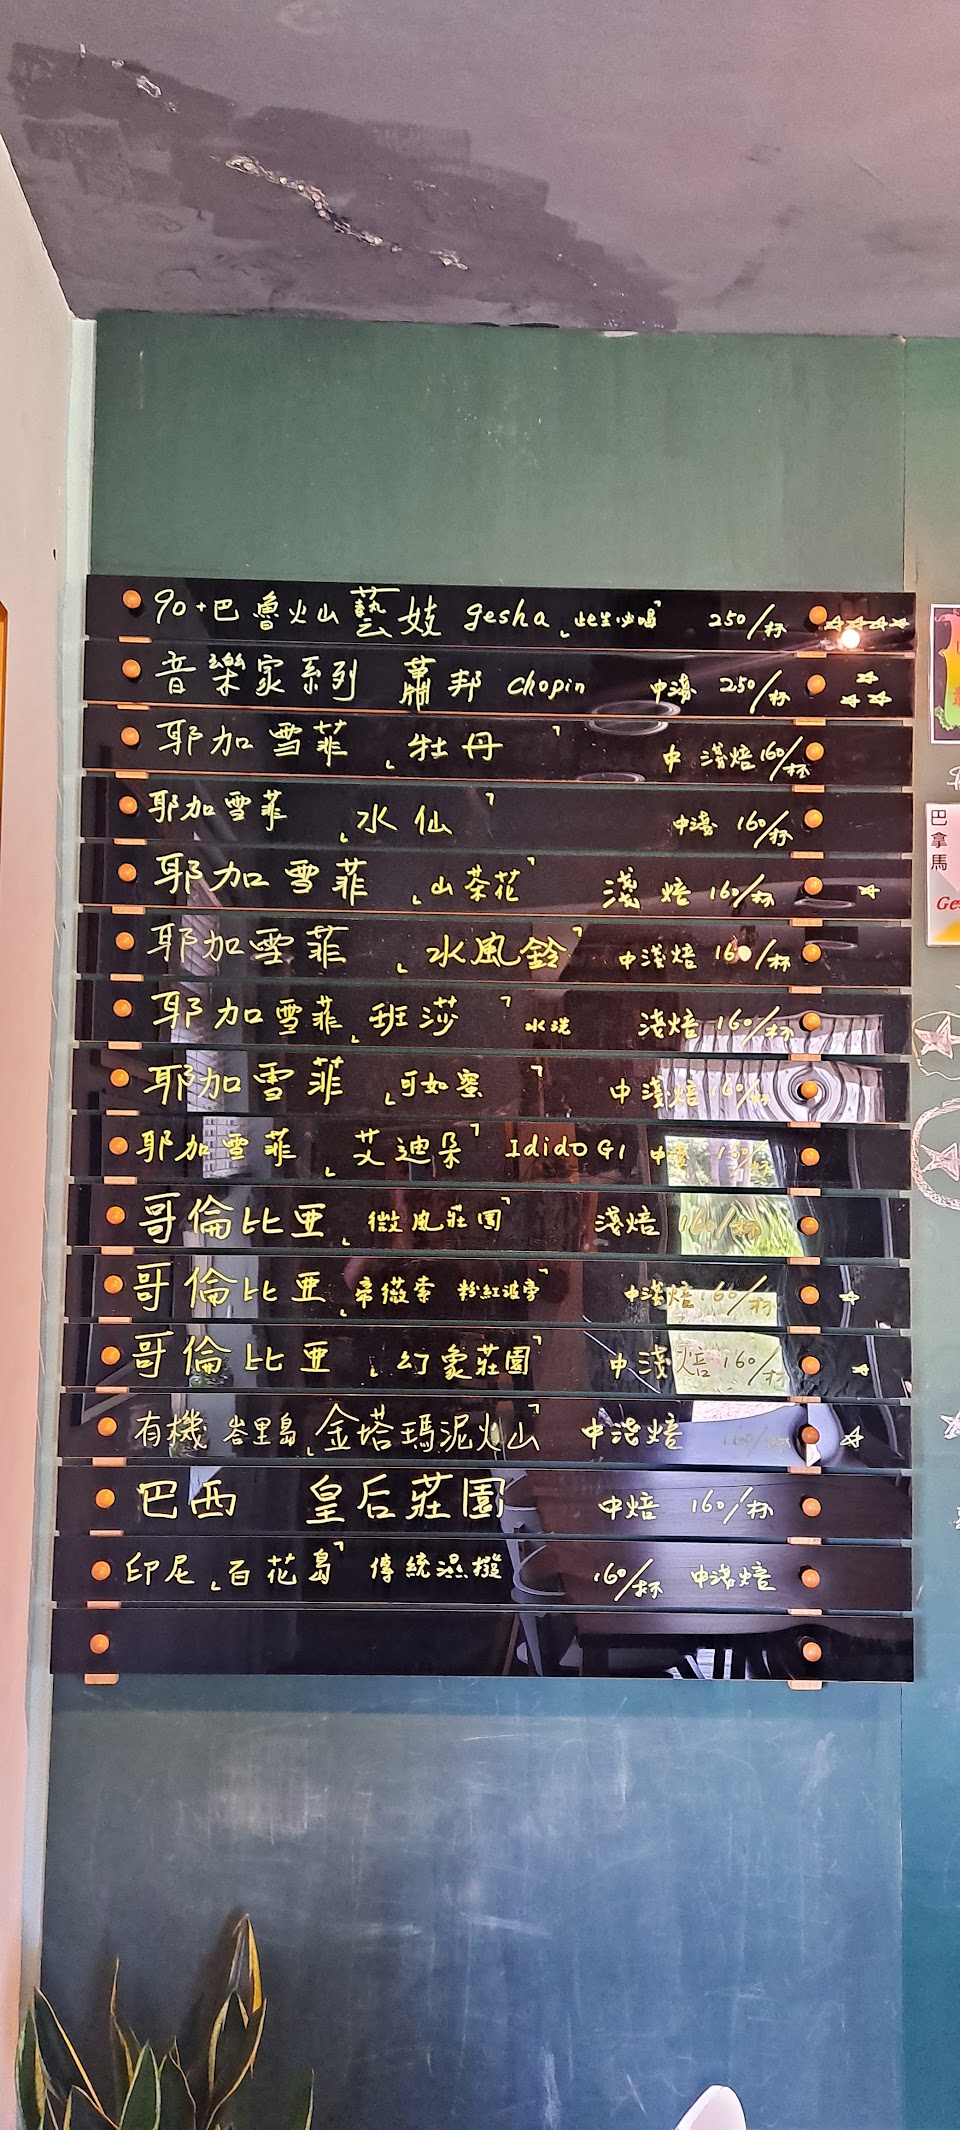 90+巴魯火山藝妓 gesha「此生必喝」 250/杯 ☆☆☆☆
音樂家系列 蕭邦 chopin 中淺 250/杯 ☆☆☆
耶加雪菲「牡丹」 中淺焙 160/杯
耶加雪菲「水仙」 中淺 160/杯
耶加雪菲「山茶花」 淺焙 160/杯 ☆
耶加雪菲「水風鈴」 中淺焙 160/杯
耶加雪菲「班莎」 水洗 淺焙 160/杯
耶加雪菲「可如蜜」 中淺焙 160/杯
耶加雪菲「艾迪朵」 Idido G1 中淺 160/杯
哥倫比亞「微風莊園」 淺焙 160/杯
哥倫比亞「帝薇索 粉紅波旁」 中淺焙 160/杯 ☆
哥倫比亞「幻象莊園」 中淺焙 160/杯 ☆
有機 峇里島「金塔瑪泥火山」 中淺焙 160/杯 ☆
巴西 皇后莊園 中焙 160/杯
印尼「百花島」 傳統濕撥 160/杯 中淺焙
巴拿馬
Ge